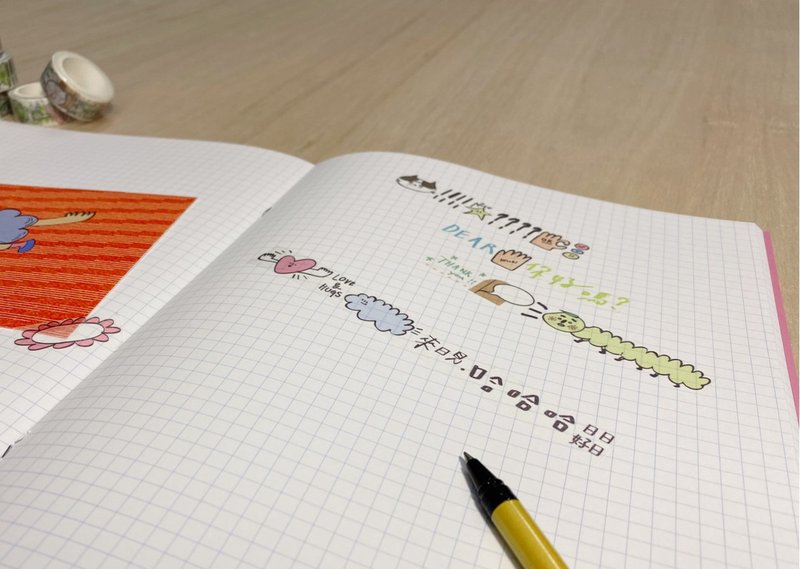 !!!! ????
DEAR 你好嗎?
THANK you!!
LOVE & HUGS
來日見.哈哈哈 日日好日